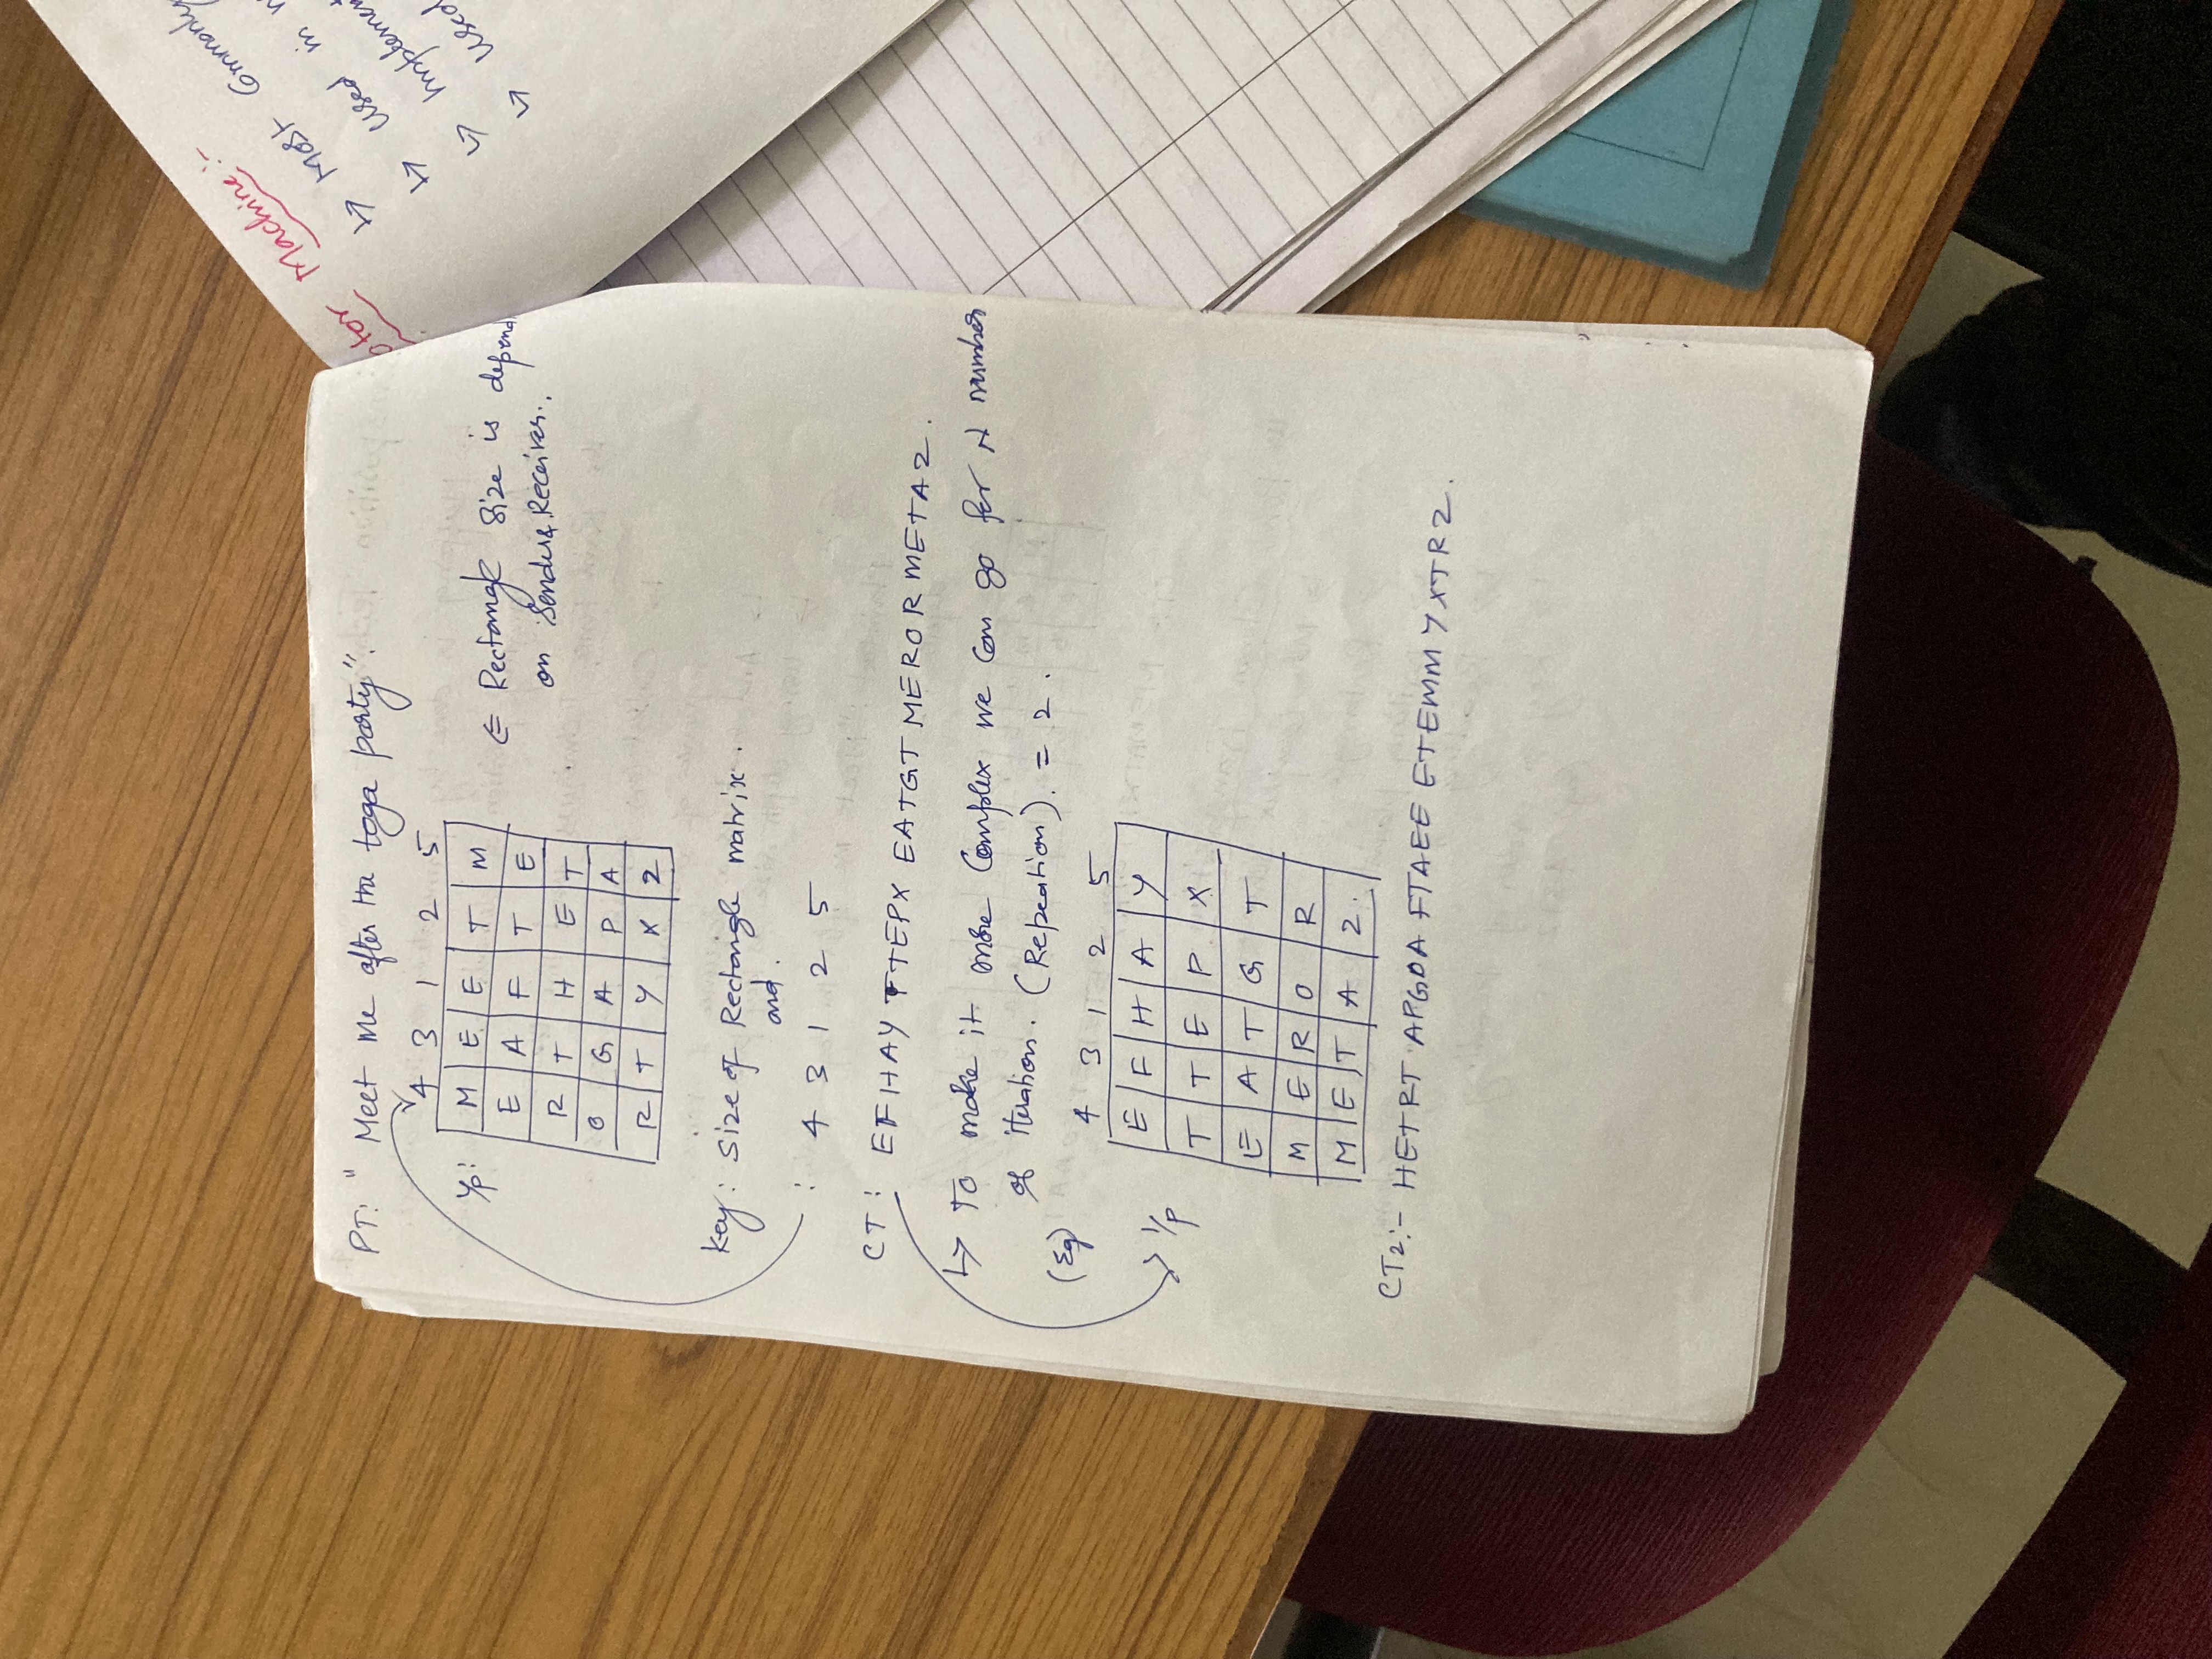 PT: " Meet me after the toga party".
4 3 1 2 5
I/p: M E E T M
E A F T E
R T H E T
O G A P A
R T Y X Z
∈ Rectangle size is depend
on Sender & Receiver..
Key: Size of Rectangle matrix.
and.
: 4 3 1 2 5
CT: EFHAY TTEPX EATGT MEROR METAZ.
↳ To make it more Complex we can go for N number
of iteration. (Repeation). = 2.
(Eg)
4 3 1 2 5
I/p E F H A Y
T T E P X
E A T G T
M E R O R
M E T A Z.
CT2:- HETRT APGOA FTAEE ETEMM YXTRZ.
Machine:-
↳ Most Commonly
↳ Used in
↳ Implement
↳ Used